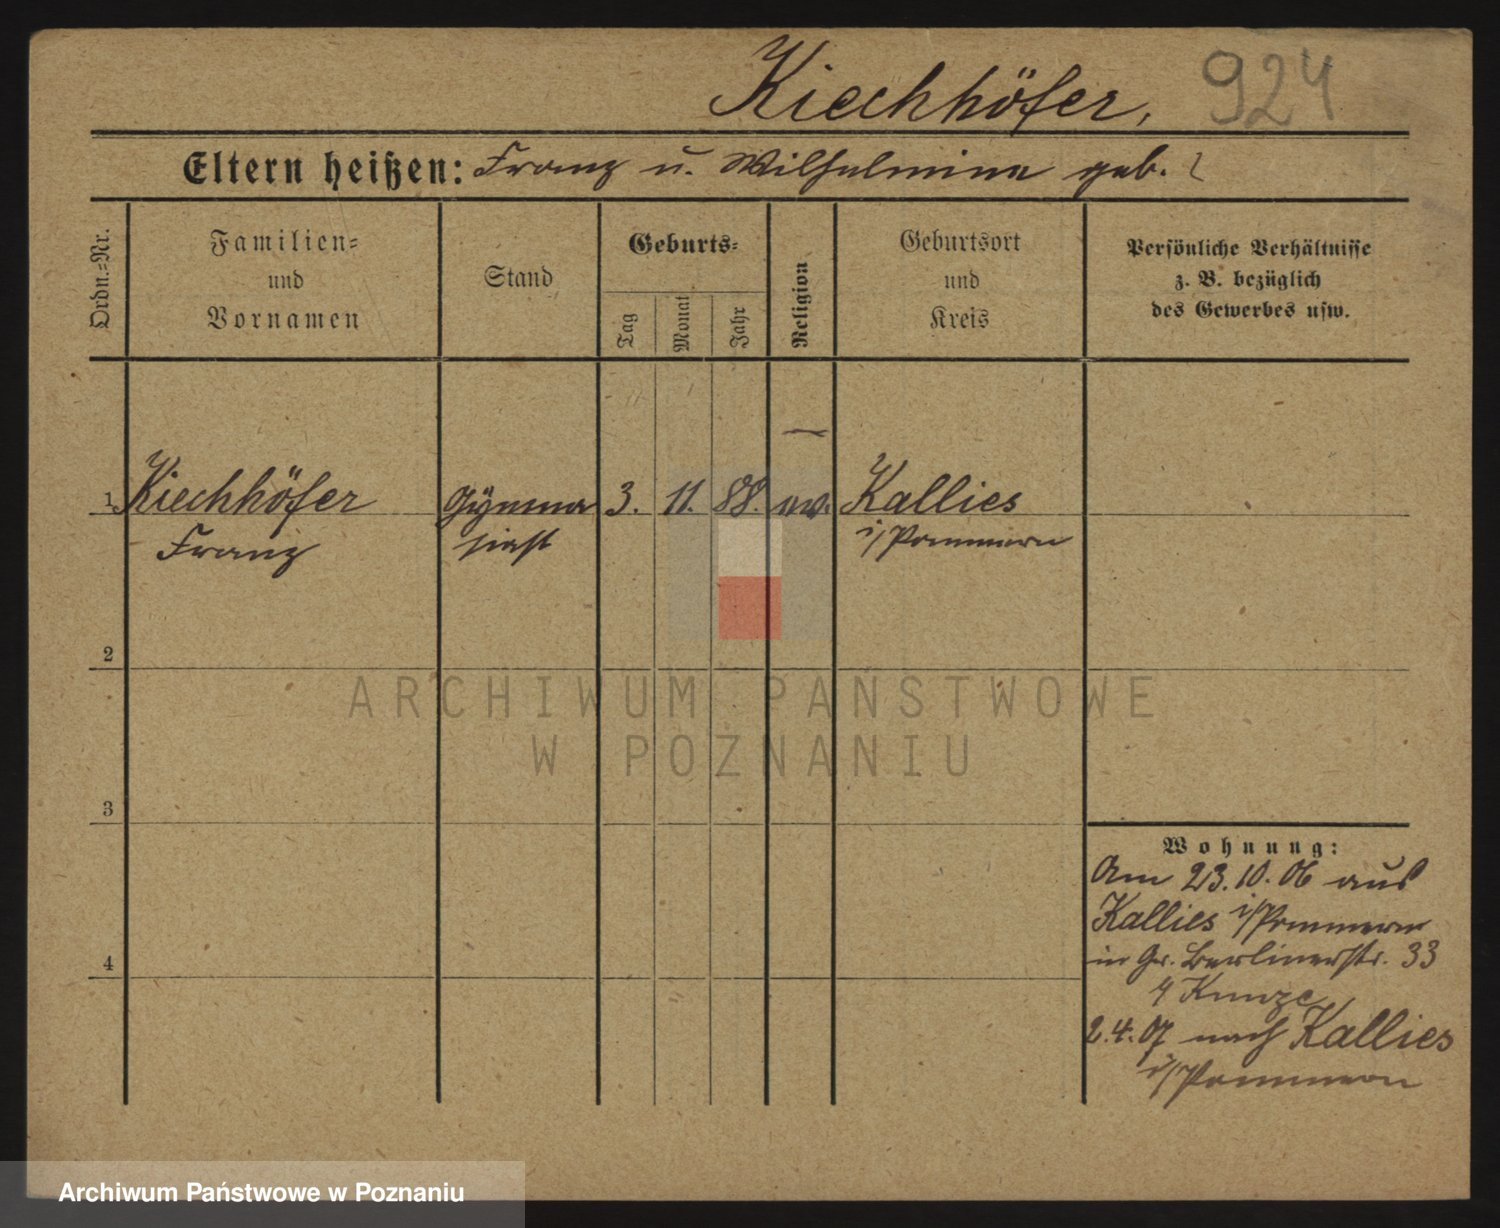 Kiechhöfer, 924
Eltern heißen: Franz u. Wilhelmine geb. ?
Ordn.=Nr.
Familien=
und
Vornamen
Stand
Geburts=
Tag
Monat
Jahr
Religion
Geburtsort
und
Kreis
Persönliche Verhältnisse
z. B. bezüglich
des Gewerbes usw.
1 Kiechhöfer Gymna 3. 11. 88. ev. Kallies
Franz siast i/Pommern
2
3
4
Wohnung:
Am 23.10.06 aus
Kallies i/Pommern
in Gr. Berlinerstr. 33
Kunze
2.4.07 nach Kallies
i/Pommern
ARCHIWUM PAŃSTWOWE
W POZNANIU
Archiwum Państwowe w Poznaniu